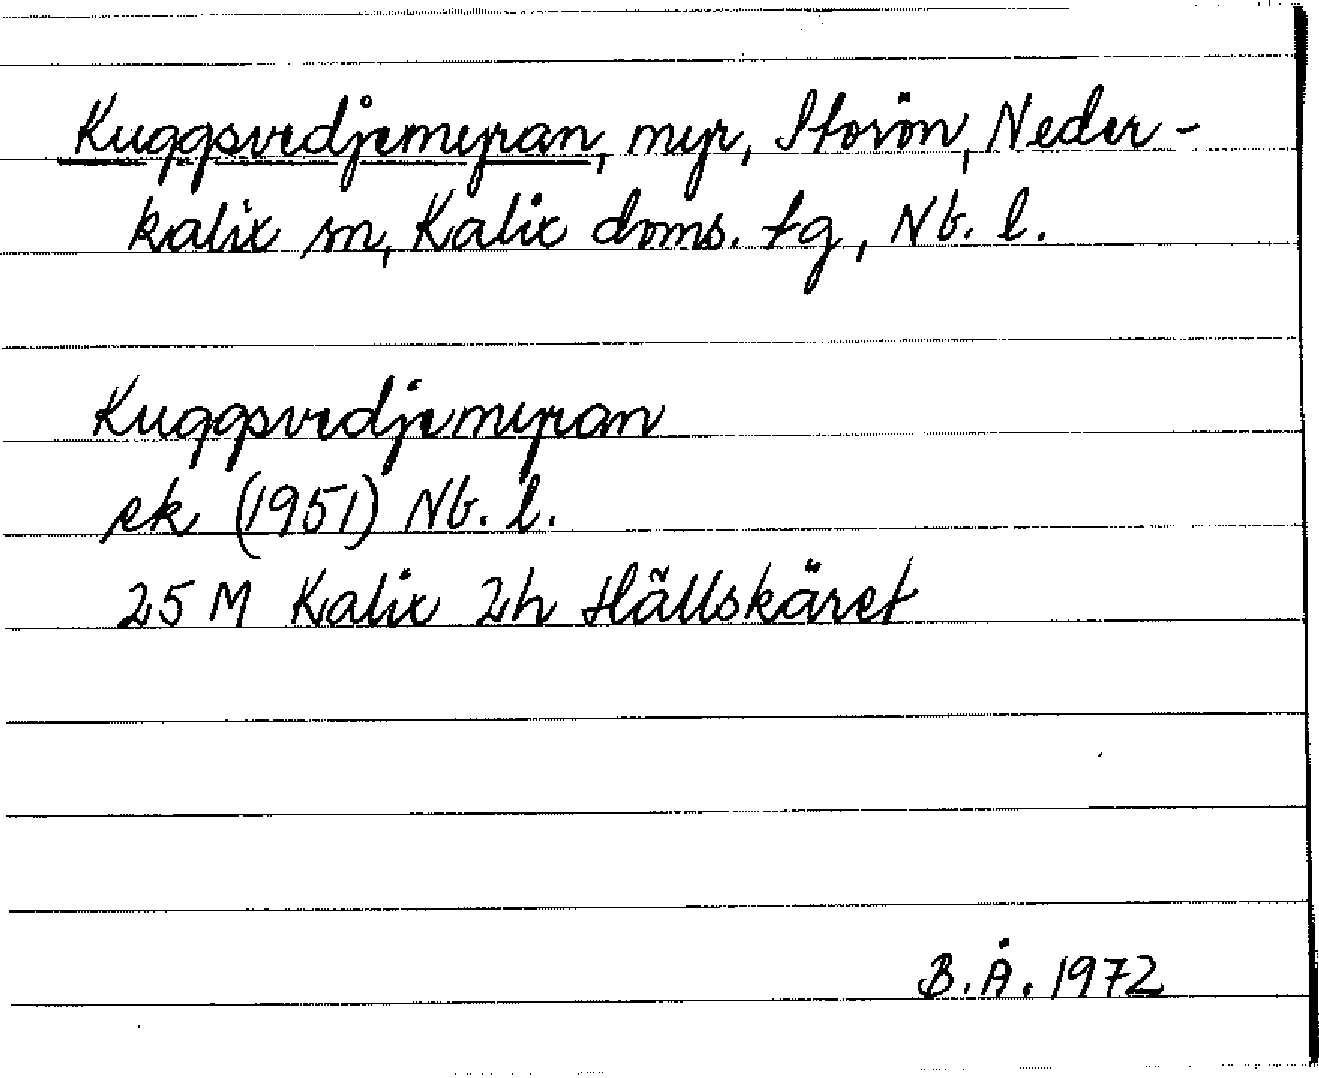 Kuggsvedjemyran, myr, Storön, Neder-
kalix sn, Kalix doms. tg, Nb. l.
Kuggsvedjemyran
ek (1951) Nb. l.
25 M Kalix 2h Hällskäret
B.Å. 1972